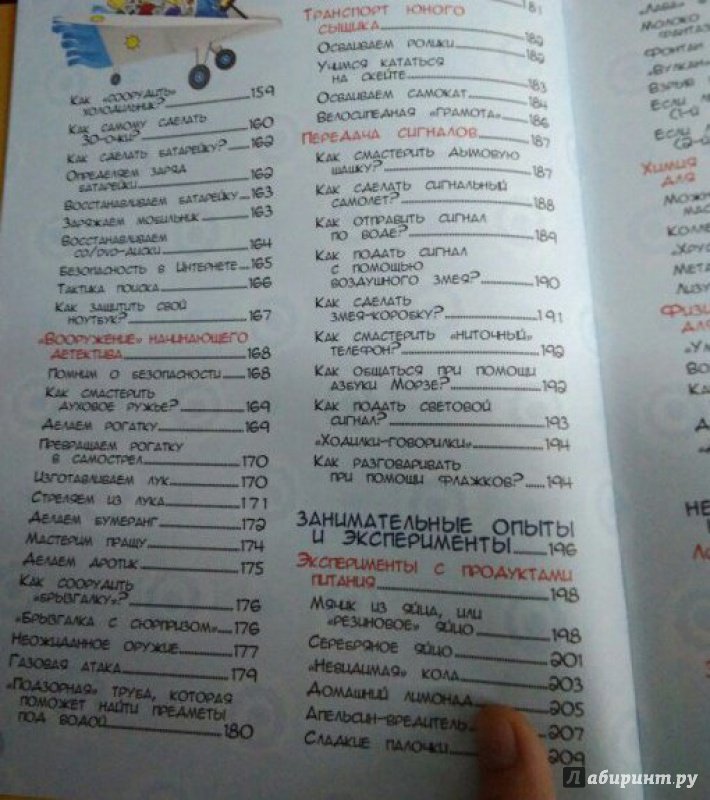 Как «соорудить»
холодильник? 159
Как самому сделать
3D-очки? 160
Как сделать батарейку? 162
Определяем заряд
батарейки 162
Восстанавливаем батарейку 163
Заряжаем мобильник 163
Восстанавливаем
CD/DVD-диски 164
Безопасность в Интернете 165
Тактика поиска 166
Как защитить свой
ноутбук? 167
«Вооружение» начинающего
детектива 168
Помним о безопасности 168
Как смастерить
духовое ружье? 169
Делаем рогатку 169
Превращаем рогатку
в самострел 170
Изготавливаем лук 170
Стреляем из лука 171
Делаем бумеранг 172
Мастерим пращу 174
Делаем дротик 175
Как соорудить
«брызгалку»? 176
«Брызгалка с сюрпризом» 176
Неожиданное оружие 177
Газовая атака 179
«Подзорная» труба, которая
поможет найти предметы
под водой 180
181
Транспорт юного
сыщика 182
Осваиваем ролики 182
Учимся кататься
на скейте 183
Осваиваем самокат 184
Велосипедная «грамота» 186
Передача сигналов 187
Как смастерить дымовую
шашку? 187
Как сделать сигнальный
самолет? 188
Как отправить сигнал
по воде? 189
Как подать сигнал
с помощью
воздушного змея? 190
Как сделать
змея-коробку? 191
Как смастерить «ниточный»
телефон? 192
Как общаться при помощи
азбуки Морзе? 192
Как подать световой
сигнал? 193
«Ходилки-говорилки» 194
Как разговаривать
при помощи флажков? 194
Занимательные опыты
и эксперименты 196
Эксперименты с продуктами
питания 198
Мячик из яйца, или
«резиновое» яйцо 198
Серебряное яйцо 201
«Невидимая» кола 203
Домашний лимонад 205
Апельсин-вредитель 207
Сладкие палочки 209
«Лава»
Молоко
фонтан
Взрыв
Если
Если
Химия
для
Можно
Колле
«Хрус
Мета
Лизу
Физи
для
«Ум
Во
Ка
Лабиринт.ру